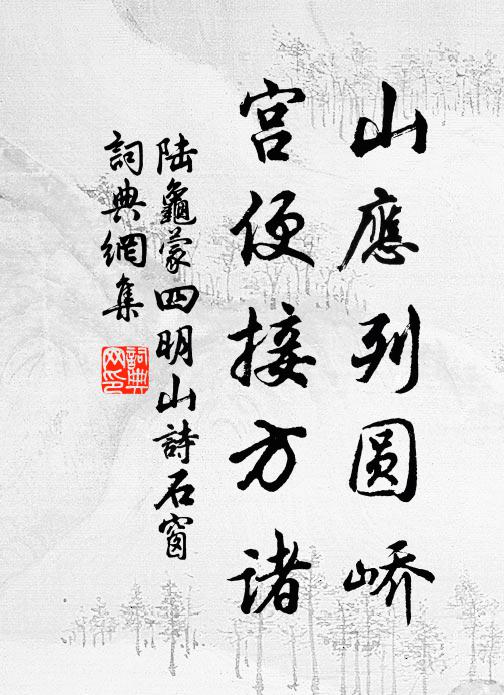 山應列圆峤
宫便接方诸
陆龜蒙四明山詩石窗
詞典網集
詞典
网印